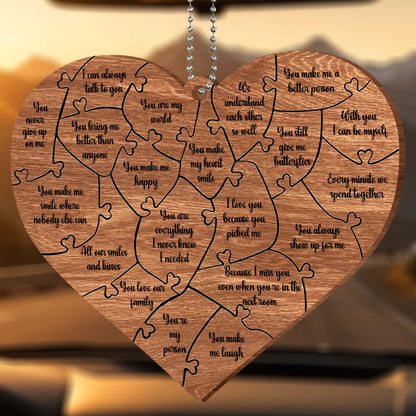 I can always
talk to you
You make me a
better person
You
never
give up
on me
You are my
world
We
understand
each other
so well
With you
I can be myself
You bring me
better than
anyone
You still
give me
butterflies
You make
my heart
smile
You make me
happy
Every minute we
spend together
You make me
smile where
nobody else can
I love you
because you
picked me
You are
everything
I never knew
I needed
You always
show up for me
All our smiles
and kisses
Because I miss you
even when you're in the
next room
You love our
family
You're
my
person
You make
me laugh